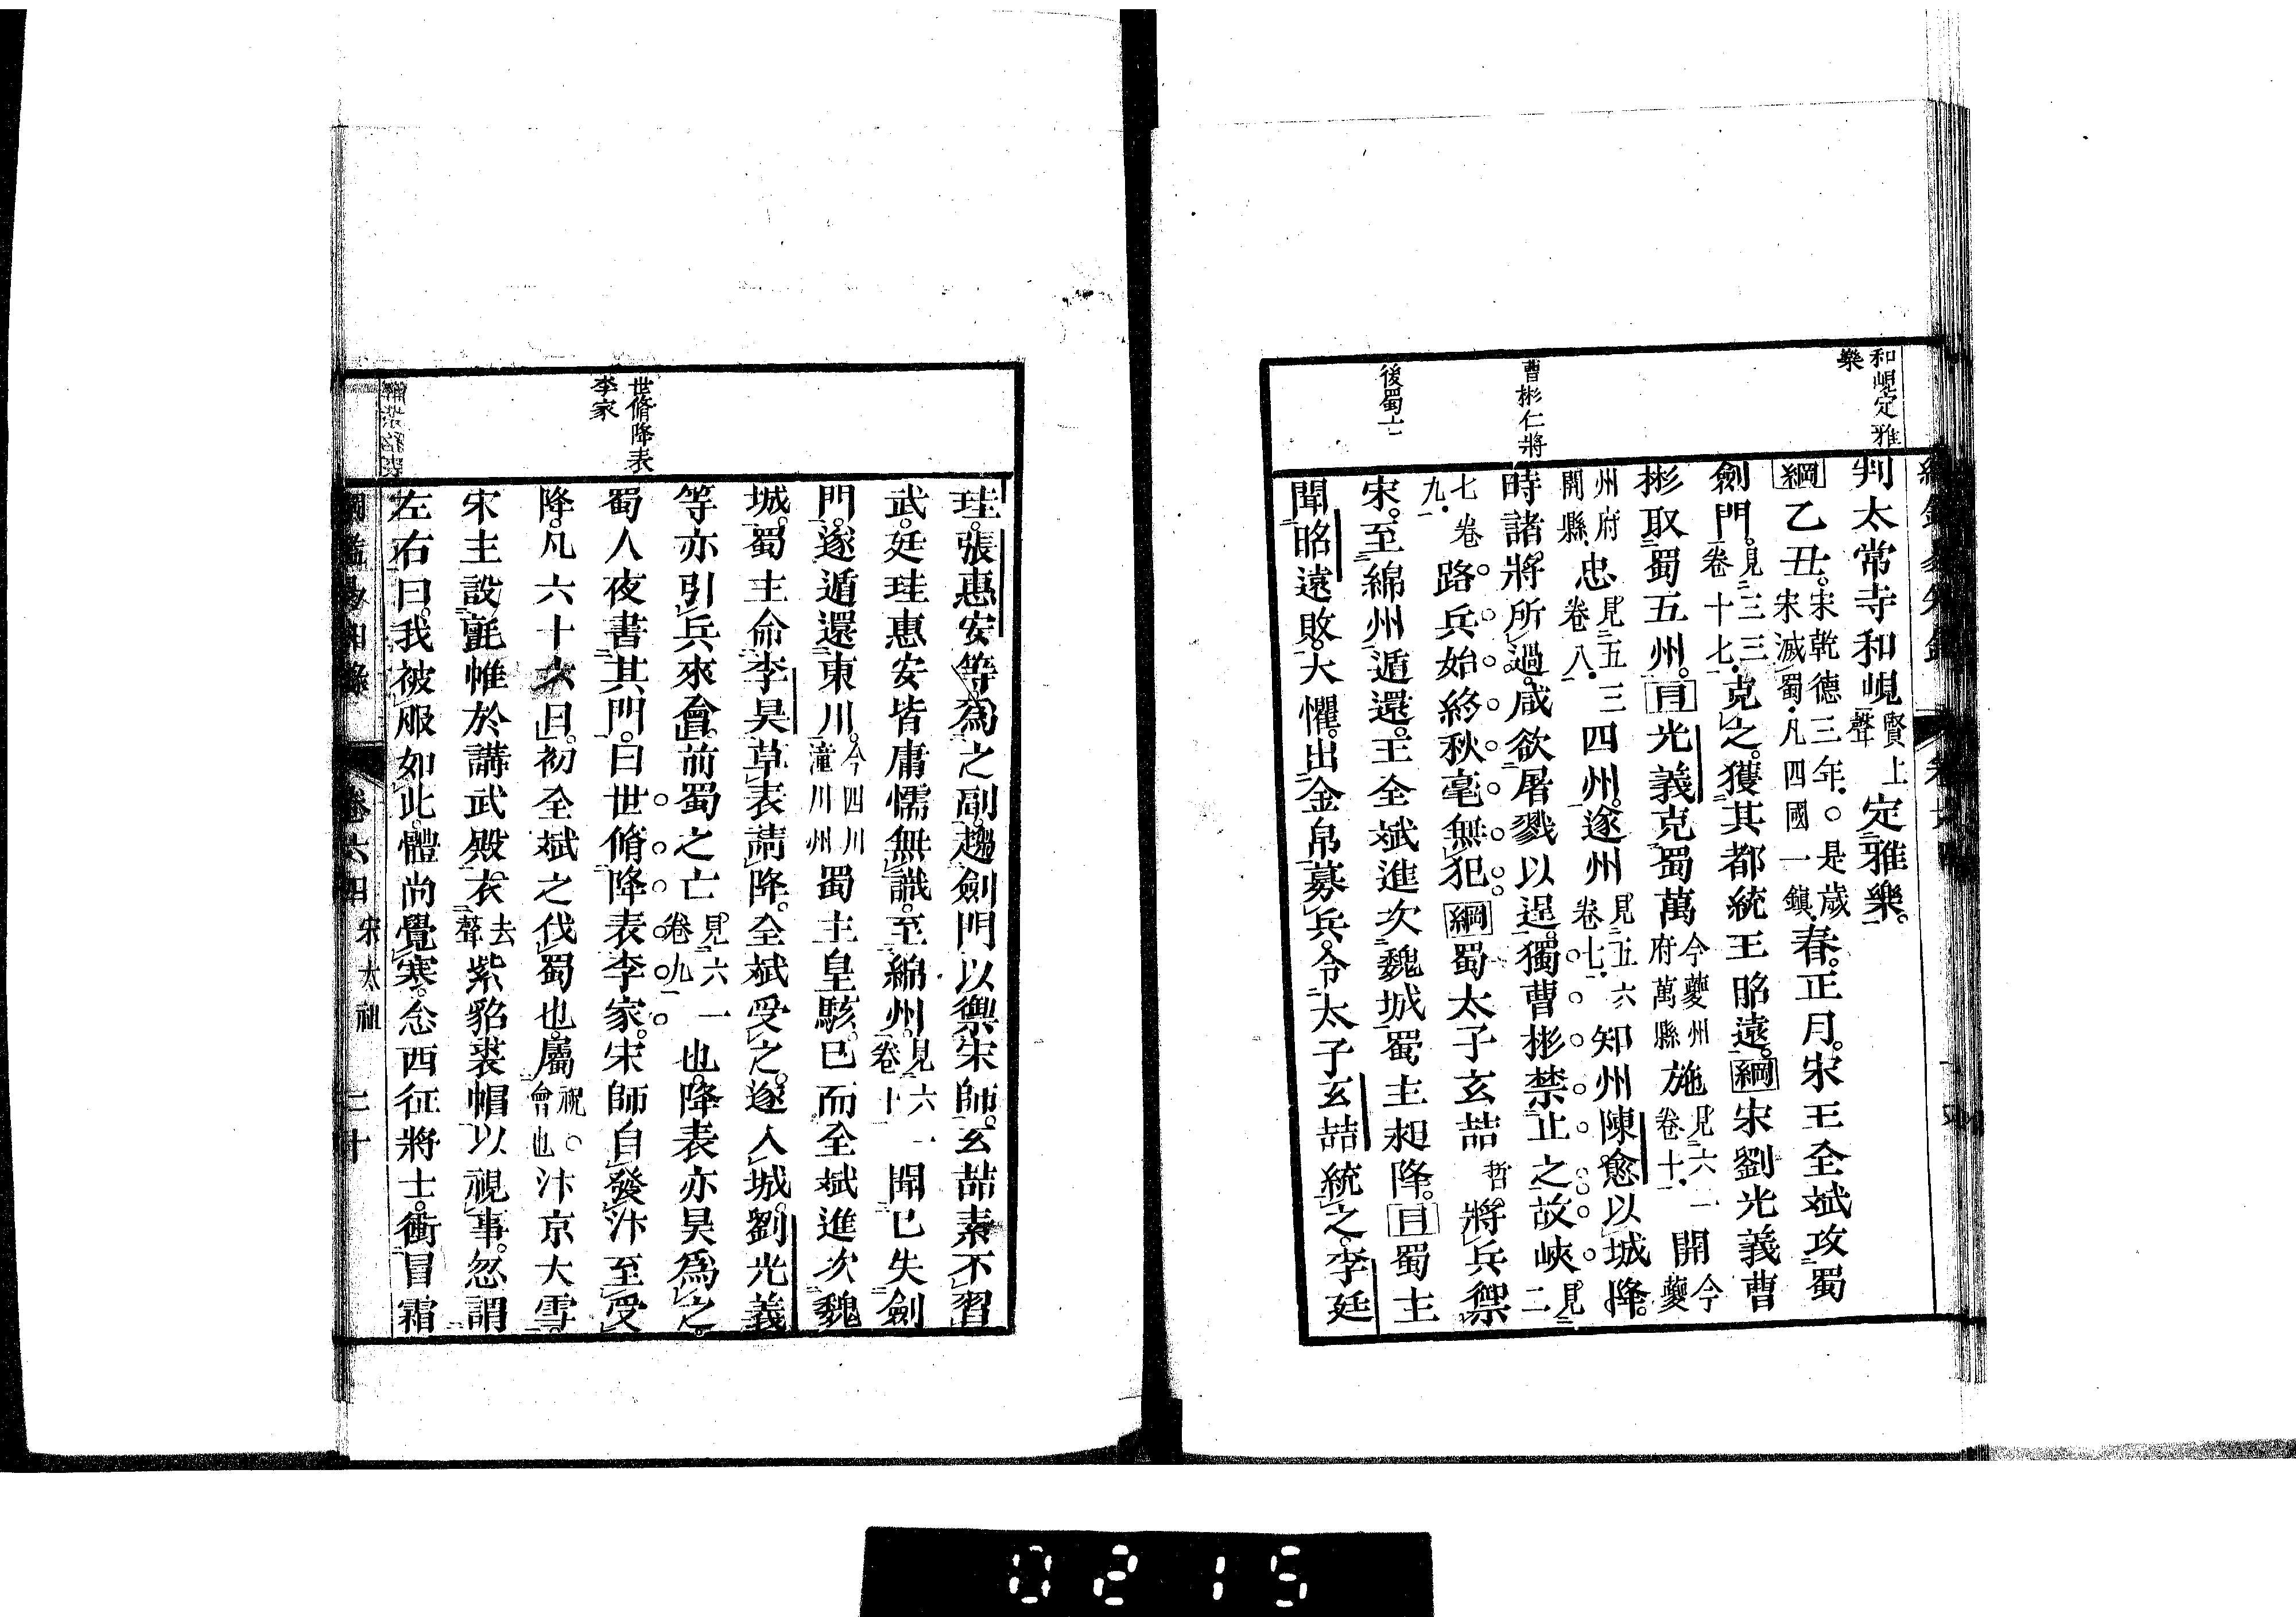 和峴定雅
樂
曹彬仁將
後蜀亡
判太常寺和峴賢上聲定雅樂。
綱乙丑。宋乾德三年。○是歲宋滅蜀。凡四國一鎮。春。正月。宋王全斌攻蜀
劍門。見三三卷十七。克之。獲其都統王昭遠。綱宋劉光義曹
彬取蜀五州。目光義克蜀萬今夔州府萬縣施見六一卷十。開今夔
州府開縣。忠見五三卷八。四州。遂州見五六卷七。知州陳愈以城降。
時諸將所過。咸欲屠戮以逞。獨曹彬禁止之。故峽見二
七卷九。路兵始終秋毫無犯。綱蜀太子玄喆哲。將兵禦
宋。至綿州遁還。王全斌進次魏城。蜀主昶降。目蜀主
聞昭遠敗。大懼。出金帛募兵。令太子玄喆統之。李廷
世脩降表
李家
珪。張惠安等爲之副。趨劍門以禦宋師。玄喆素不習
武。廷珪惠安皆庸懦無識。至綿州。見六一卷十聞已失劍
門。遂遁還東川。今四川潼川州蜀主皇駭。已而全斌進次魏
城。蜀主命李昊草表請降。全斌受之。遂入城。劉光義
等亦引兵來會。前蜀之亡見六一卷九也。降表亦昊爲之。
蜀人夜書其門。曰世脩降表李家。宋師自發汴至受
降。凡六十六日。初全斌之伐蜀也。屬祝○會也汴京大雪。
宋主設氈帷於講武殿。衣去聲紫貂裘帽以視事。忽謂
左右曰。我被服如此。體尚覺寒。念西征將士。衝冒霜
卷六四 宋太祖 二十
0215